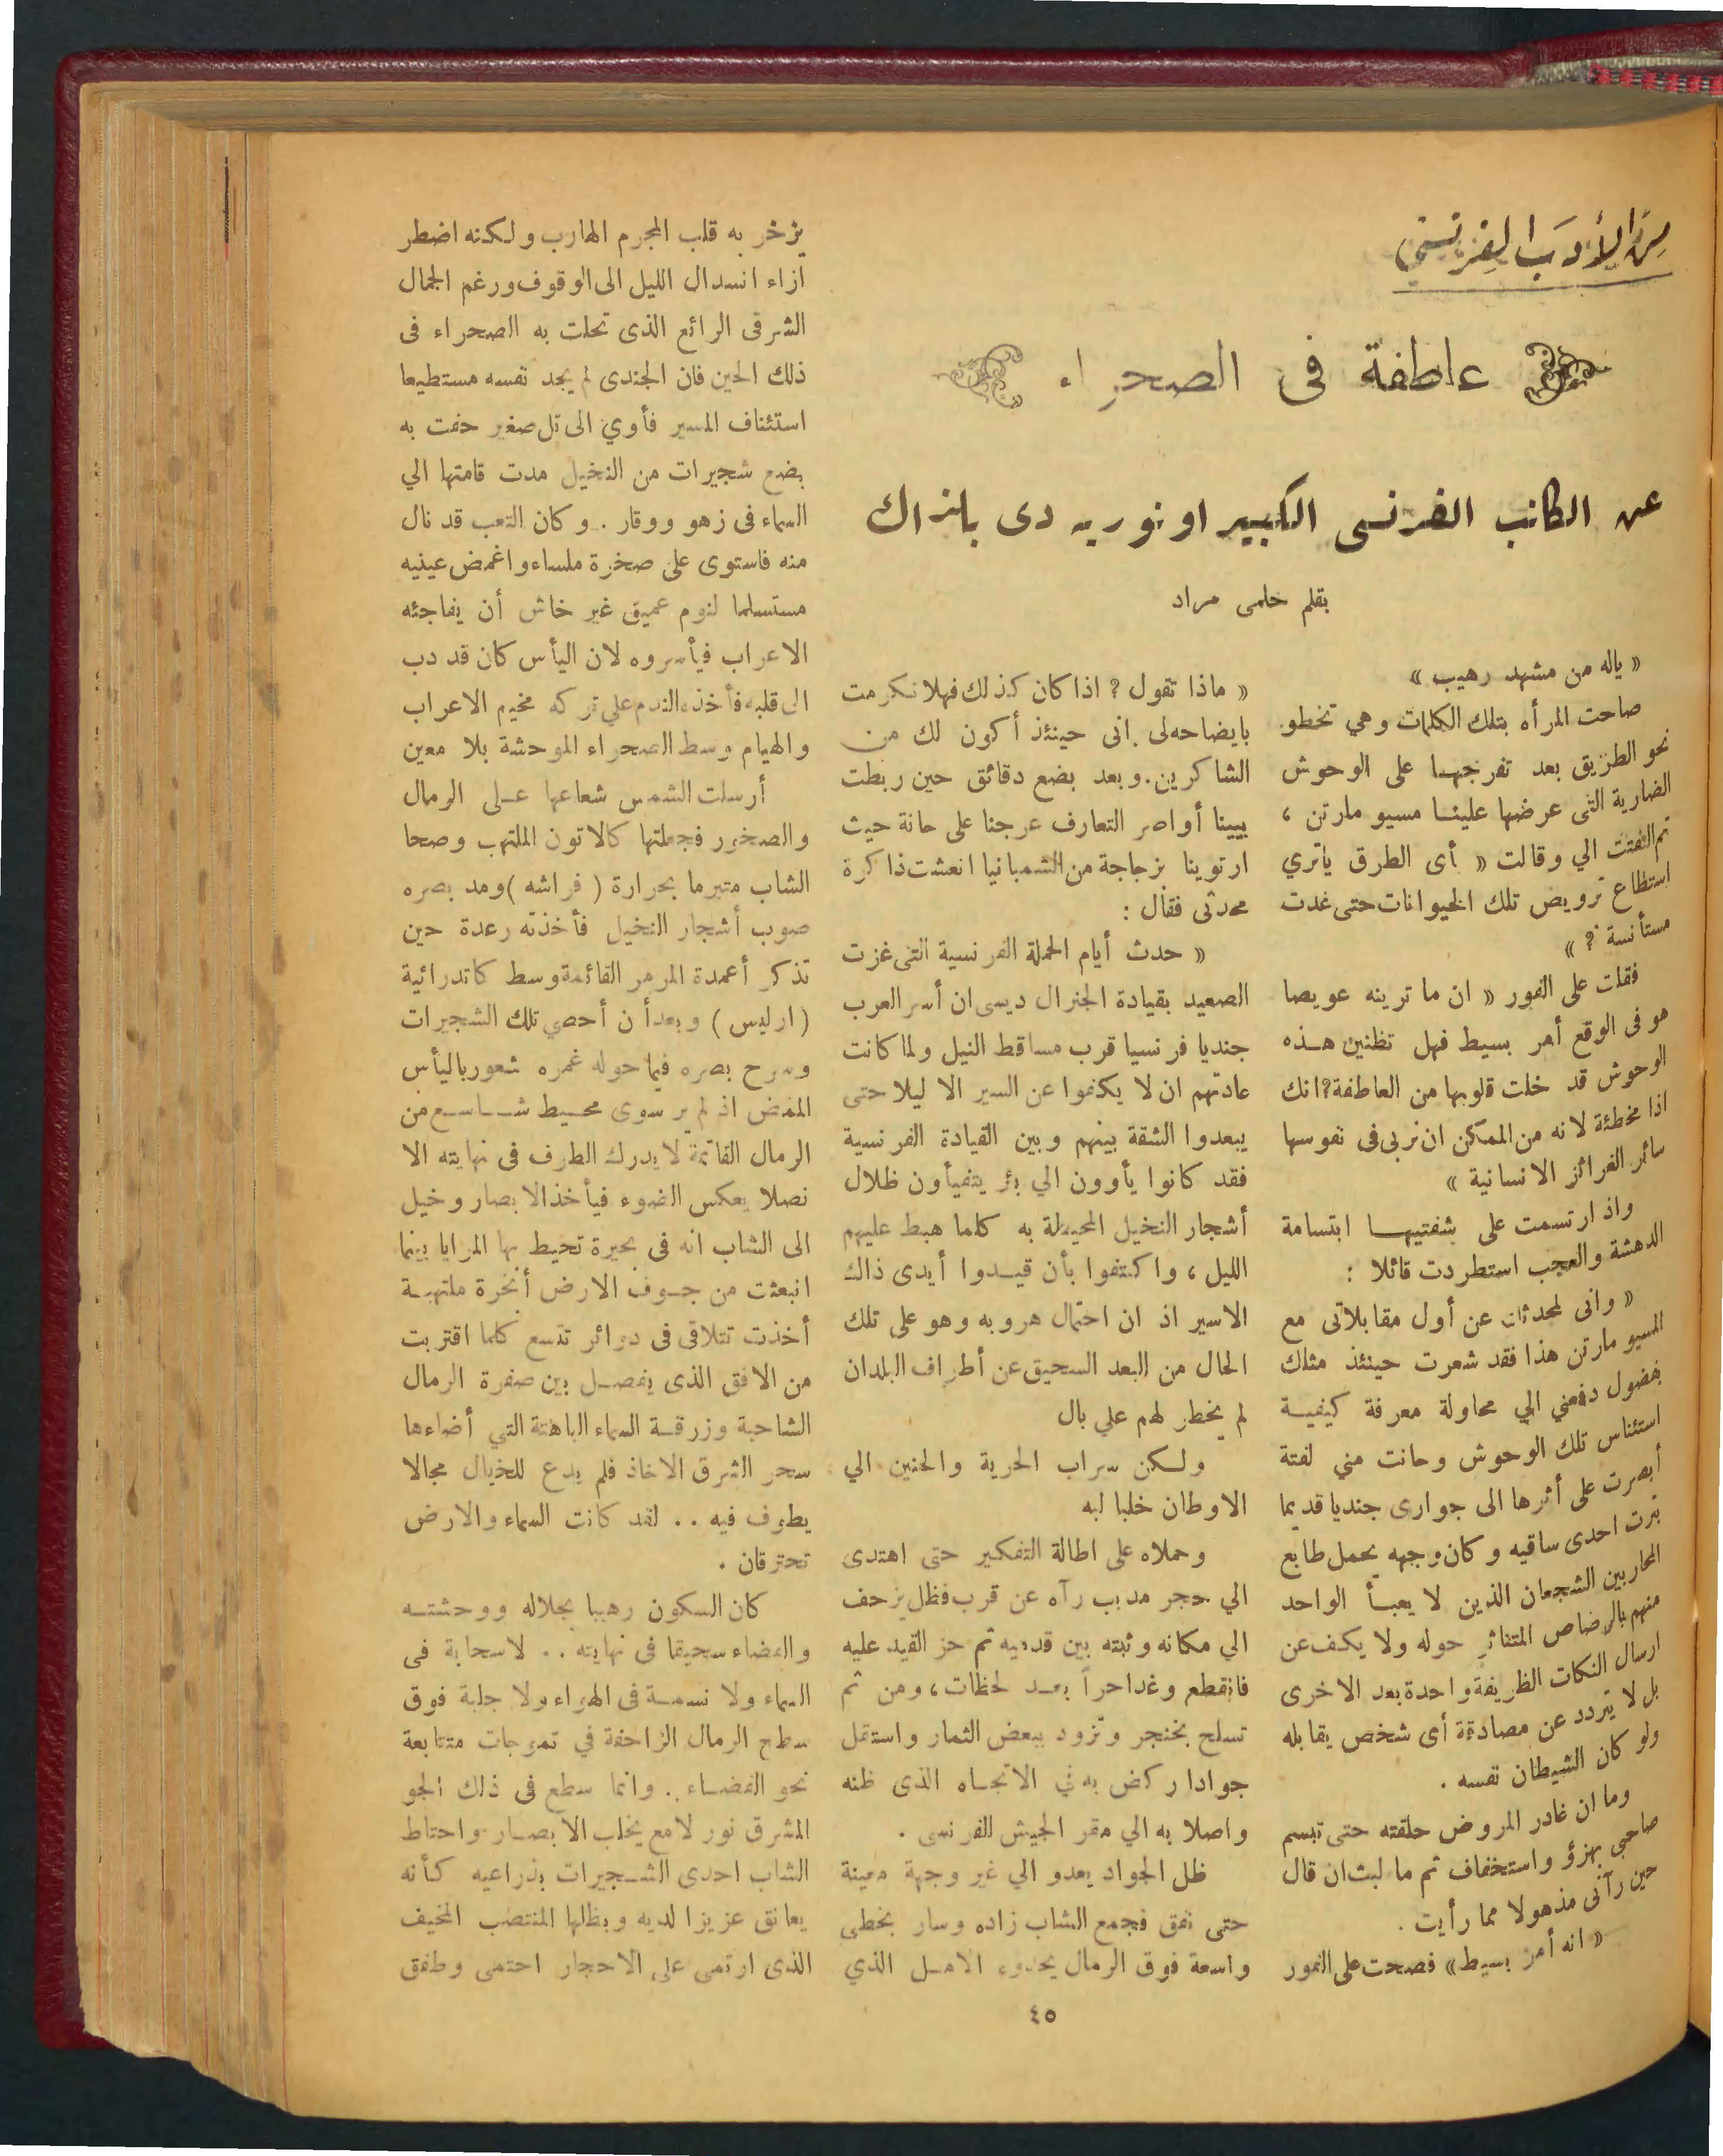 من الأدب الفرنسي
عاطفة فى الصحراء
عن الكاتب الفرنسى الكبير اونوريه دى بلزاك
بقلم حلمى مراد
« ياله من مشهد رهيب »
صاحت المرأه بتلك الكلمات وهي تخطو
نحو الطريق بعد تفرجهـا على الوحوش
الضارية التى عرضها علينـا مسيو مارتن ،
ثم التفتت الي وقالت « أى الطرق ياترى
استطاع ترويض تلك الحيوانات حتى غدت
مستأنسة ? »
فقلت على الفور « ان ما ترينه عويصا
هو فى الوقع أمر بسيط فهل تظنين هـذه
الوحوش قد خلت قلوبها من العاطفة? انك
اذا مخطئة لانه من الممكن ان تربى فى نفوسها
سائر الغرائز الانسانية »
واذ ارتسمت على شفتيهـا ابتسامة
الدهشة والعجب استطردت قائلا :
« وانى لمحدثك عن أول مقابلاتى مع
المسيو مارتن هذا فقد شعرت حينئذ مثلك
بفضول دفعني الي محاولة معرفة كيفيـة
استئناس تلك الوحوش وحانت مني لفتة
أبصرت على أثرها الى جوارى جنديا قديما
بترت احدى ساقيه وكان وجهه يحمل طابع
المحاربين الشجعان الذين لا يعبـأ الواحد
منهم بالرصاص المتناثر حوله ولا يكف عن
ارسال النكات الظريفة واحدة بعد الاخرى
بل لا يتردد عن مصادقة أى شخص يقابله
ولو كان الشيطان نفسه .
وما ان غادر المروض حلقته حتى تبسم
صاحبي بهزؤ واستخفاف ثم ما لبث ان قال
حين رآنى مذهولا مما رأيت .
« انه أمر بسيط » فصحت على الفور
« ماذا تقول ? اذا كان كذلك فهلا تكرمت
بايضاحه لى . انى حينئذ أكون لك من
الشاكرين . وبعد بضع دقائق حين ربطت
بيينا أواصر التعارف عرجنا على حانة حيث
ارتوينا بزجاجة من الشمبانيا انعشت ذاكرة
محدثى فقال :
« حدث أيام الحملة الفرنسية التى غزت
الصعيد بقيادة الجنرال ديسى ان أسر العرب
جنديا فرنسيا قرب مساقط النيل ولما كانت
عادتهم ان لا يكفوا عن السير الا ليلا حتى
يبعدوا الشقة بينهم وبين القيادة الفرنسية
فقد كانوا يأوون الي بئر يتفيأون ظلال
أشجار النخيل المحيطة به كلما هبط عليهم
الليل ، واكتفوا بأن قيـدوا أيدى ذاك
الاسير اذ ان احتمال هروبه وهو على تلك
الحال من البعد السحيق عن أطراف البلدان
لم يخطر لهم علي بال
ولكن سراب الحرية والحنين الي
الاوطان خلبا لبه
وحملاه على اطالة التفكير حتى اهتدى
الي حجر مدبب رآه عن قرب فظل يزحف
الي مكانه وثبته بين قدميه ثم حز القيد عليه
فانقطع وغدا حراً بعـد لحظات ، ومن ثم
تسلح بخنجر وتزود ببعض الثمار واستقل
جوادا ركض به في الاتجـاه الذى ظنه
واصلا به الي مقر الجيش الفرنسى .
ظل الجواد يعدو الي غير وجهة معينة
حتى نفق فجمع الشاب زاده وسار بخطى
واسعة فوق الرمال يحدوه الامـل الذي
يزخر به قلب المجرم الهارب ولكنه اضطر
ازاء انسدال الليل الى الوقوف ورغم الجمال
الشرقى الرائع الذى تحلت به الصحراء فى
ذلك الحين فان الجندى لم يجد نفسه مستطيعا
استئناف المسير فأوي الى تل صغير حفت به
بضع شجيرات من النخيل مدت قامتها الي
السماء فى زهو ووقار . وكان التعب قد نال
منه فاستوى على صخرة ملساء واغمض عينيه
مستسلما لنوم عميق غير خاش أن يفاجئه
الاعراب فيأسروه لان اليأس كان قد دب
الى قلبه فأخذه الندم علي تركه مخيم الاعراب
والهيام وسط الصحراء الموحشة بلا معين
أرسلت الشمس شعاعها عـلى الرمال
والصخور فجعلتها كالاتون الملتهب وصحا
الشاب متبرما بحرارة ( فراشه ) ومد بصره
صوب أشجار النخيل فأخذته رعدة حين
تذكر أعمدة المرمر القائمة وسط كاتدرائية
( ارليس ) وبعد أن أحصي تلك الشجيرات
وسرح بصره فيما حوله غمره شعور باليأس
الممض اذ لم ير سوى محـيط شـاسـع من
الرمال القاتمة لا يدرك الطرف فى نهايته الا
نصلا يعكس الضوء فيأخذ الابصار وخيل
الى الشاب انه فى بحيرة تحيط بها المرايا بينما
انبعثت من جـوف الارض أبخرة ملتهبـة
أخذت تتلاقى فى دوائر تتسع كلما اقتربت
من الافق الذى يفصـل بين صفرة الرمال
الشاحبة وزرقـة السماء الباهتة التي أضاءها
سحر الشرق الاخاذ فلم يدع للخيال مجالا
يطوف فيه . . لقد كانت السماء والارض
تحترقان .
كان السكون رهيبا بجلاله ووحشتـه
والفضاء سحيقا فى نهايته . . لا سحابة فى
السماء ولا نسمـة فى الهواء ولا جلبة فوق
سطح الرمال الزاحفة في تموجات متتابعة
نحو الفضـاء . . وانما سطع فى ذلك الجو
المشرق نور لامع يخلب الابصـار واحتاط
الشاب احدى الشـجيرات بذراعيه كـأنه
يعانق عزيزا لديه وبظلها المنتصب المخيف
الذى ارتمى على الاحجار احتمى وطفق
٤٥